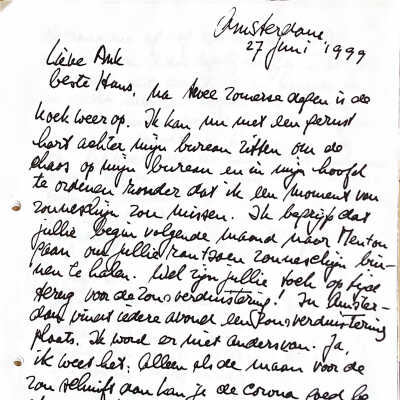 Amsterdam,
27 juni 1999
Lieve Ank
beste Hans, na twee zomerse dagen is de
koek weer op. Ik kan nu met een gerust
hart achter mijn bureau zitten om de
chaos op mijn bureau en in mijn hoofd
te ordenen zonder dat ik een moment van
zonneschijn zou missen. Ik begrijp dat
jullie begin volgende maand naar Menton
gaan om jullie rantsoen zonneschijn bin-
nen te halen. Wel zijn jullie toch op tijd
terug voor de zonsverduistering! In Amster-
dam vindt iedere avond een zonsverduistering
plaats. Ik word er niet anders van. Ja,
ik weet het: alleen als de maan voor de
zon schuift dan kan je de corona goed be